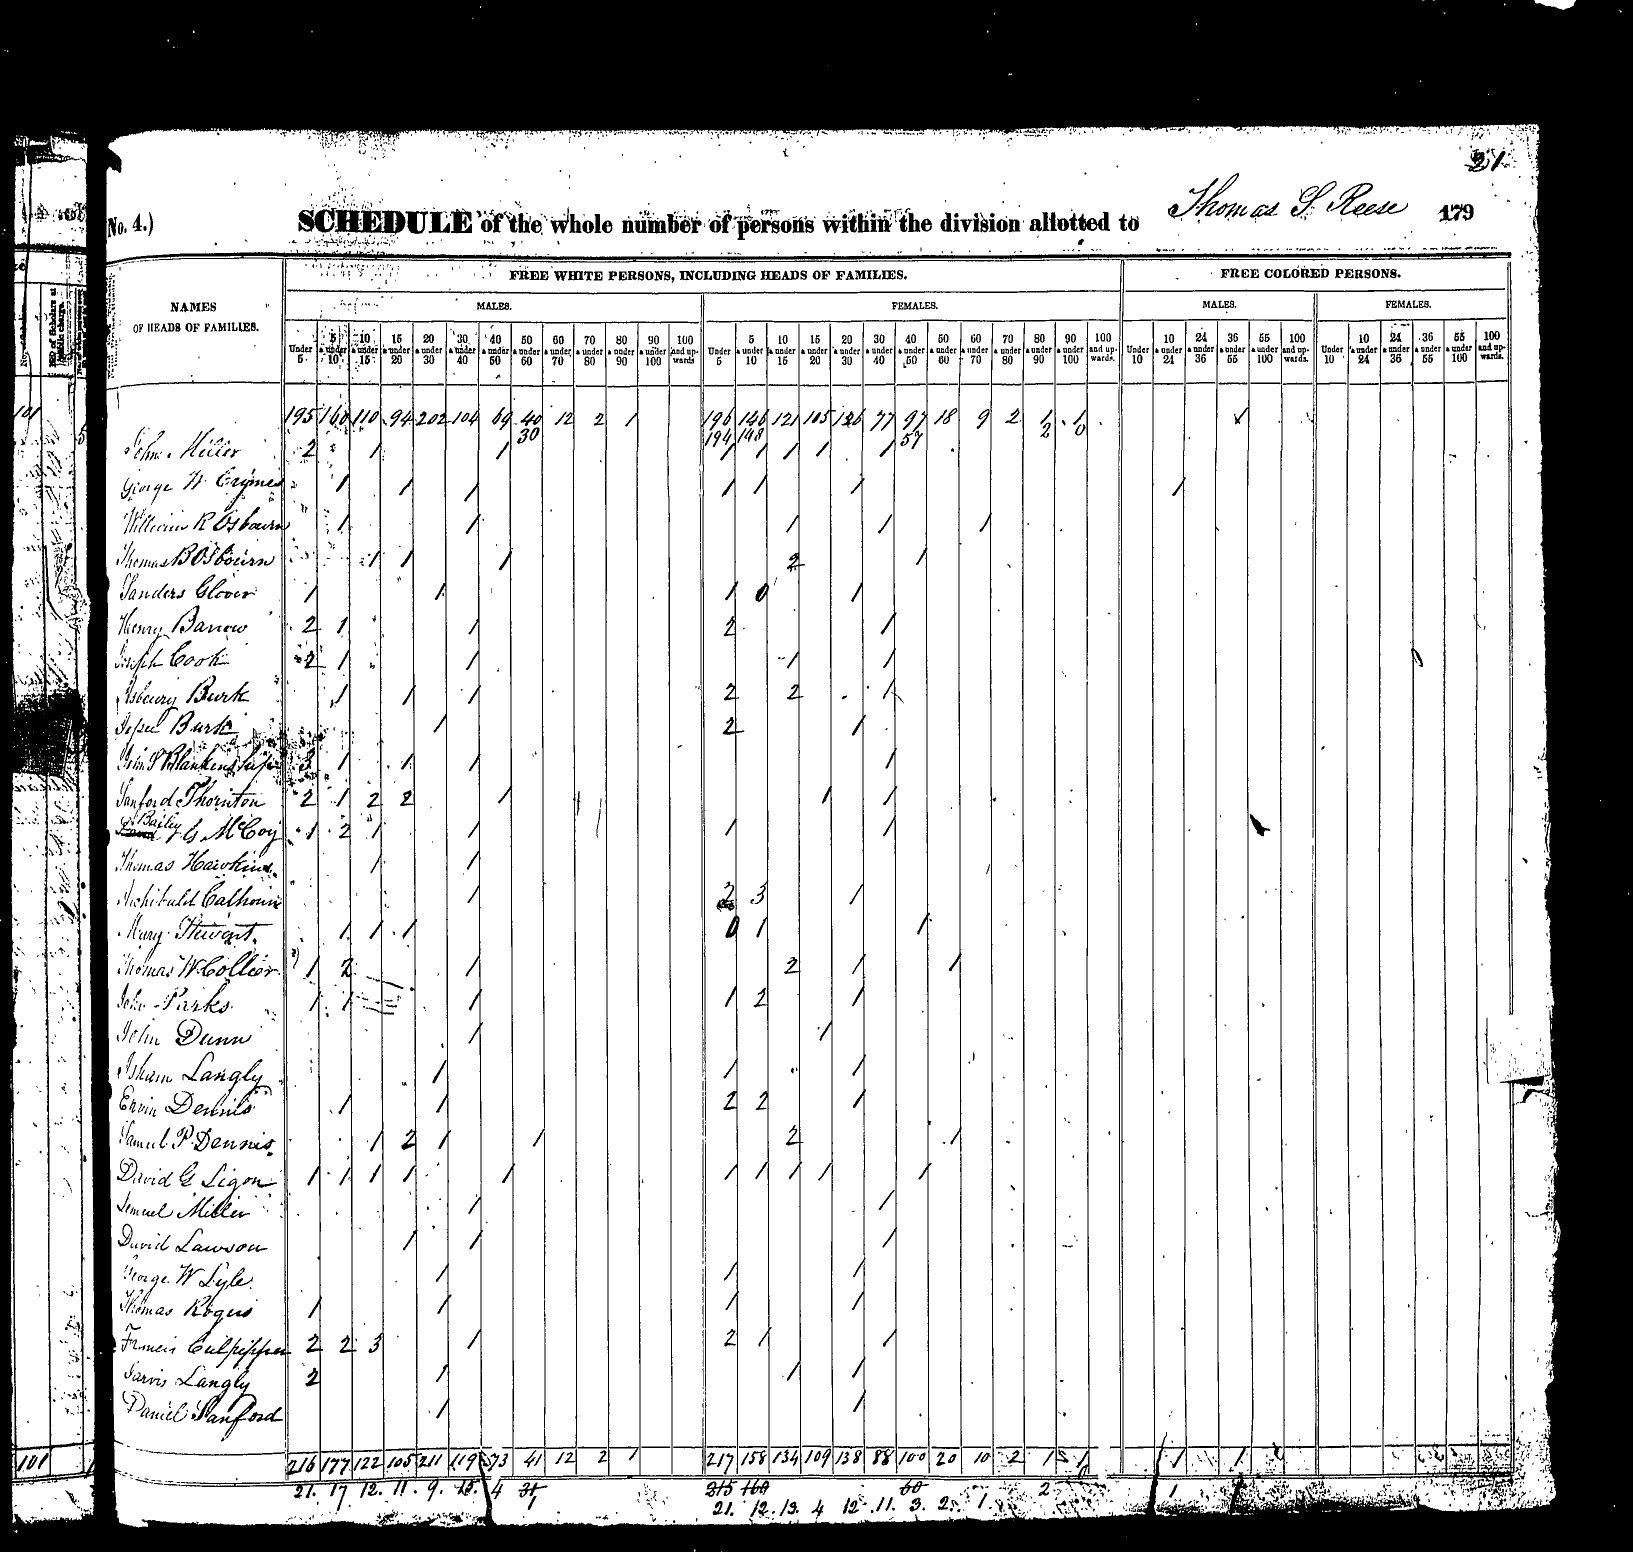 21
No. 4.) SCHEDULE of the whole number of persons within the division allotted to Thomas S. Reese 179
FREE WHITE PERSONS, INCLUDING HEADS OF FAMILIES. FREE COLORED PERSONS.
NAMES OF HEADS OF FAMILIES. MALES. FEMALES. MALES. FEMALES.
Under 5 5 & under 10 10 & under 15 15 & under 20 20 & under 30 30 & under 40 40 & under 50 50 & under 60 60 & under 70 70 & under 80 80 & under 90 90 & under 100 100 and upwards Under 5 5 & under 10 10 & under 15 15 & under 20 20 & under 30 30 & under 40 40 & under 50 50 & under 60 60 & under 70 70 & under 80 80 & under 90 90 & under 100 100 and upwards. Under 10 10 & under 24 24 & under 36 36 & under 55 55 & under 100 100 and upwards. Under 10 10 & under 24 24 & under 36 36 & under 55 55 & under 100 100 and upwards.
195 160 110 94 202 104 69 40 12 2 1 196 146 121 105 126 77 97 18 9 2 1 1
30 194 148 57 2 0
John Miller 2 1 1 1 1 1 1 1
George W Crymes 1 1 1 1 1 1 1
William R Osbourn 1 1 1 1 1
Thomas B Osbourn 1 1 1 2 1
Sanders Glover 1 1 1 0 1
Henry Barrow 2 1 1 2 1
Joseph Cook 2 1 1 1 1
Asbury Burk 1 1 1 2 2 1
Jesse Burk 1 2 1
John P Blankenship 3 1 1 1 1
Sanford Thornton 2 1 2 2 1 1 1
Bailey G McCoy 1 2 1 1 1 1
Thomas Hawkins 1 1
Archibald Calhoun 1 2 3 1
Mary Stewart 1 1 1 0 1 1
Thomas W Collier 1 2 1 2 1 1
John Parks 1 1 1 1 2 1
John Dunn 1 1
Isham Langly 1 1 1
Ervin Dennis 1 1 2 2 1
Samuel P Dennis 1 2 1 1 2 1
David G Ligon 1 1 1 1 1 1 1 1 1 1
Lemuel Miller 1 1
David Lawson 1 1 1
George W Lyle 1 1 1
Thomas Rogers 1 1 1 1
Francis Culpepper 2 2 3 1 2 1 1
Jarvis Langly 2 1 1 1
Daniel Sanford 1 1
101 216 177 122 105 211 119 73 41 12 2 1 217 158 134 109 138 88 100 20 10 2 1 1 1 1
21. 17 12. 11. 9. 15. 4 31 315 160 60 2 1
1 21. 12. 13. 4 12. 11. 3. 2. 1